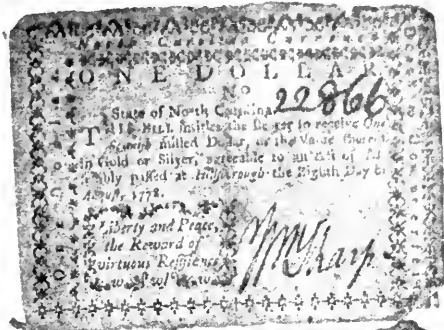 North Carolina Currency
ONE DOLLAR
No 22866
State of North Carolina
THIS BILL entitles the Bearer to receive One
Spanish milled Dollar, or the Value thereof
in Gold or Silver, agreeable to an Act of
passed at Hillsborough the Eighth Day of
August, 1778.
Liberty and Peace,
the Reward of
virtuous Resistance
Wm Sharp